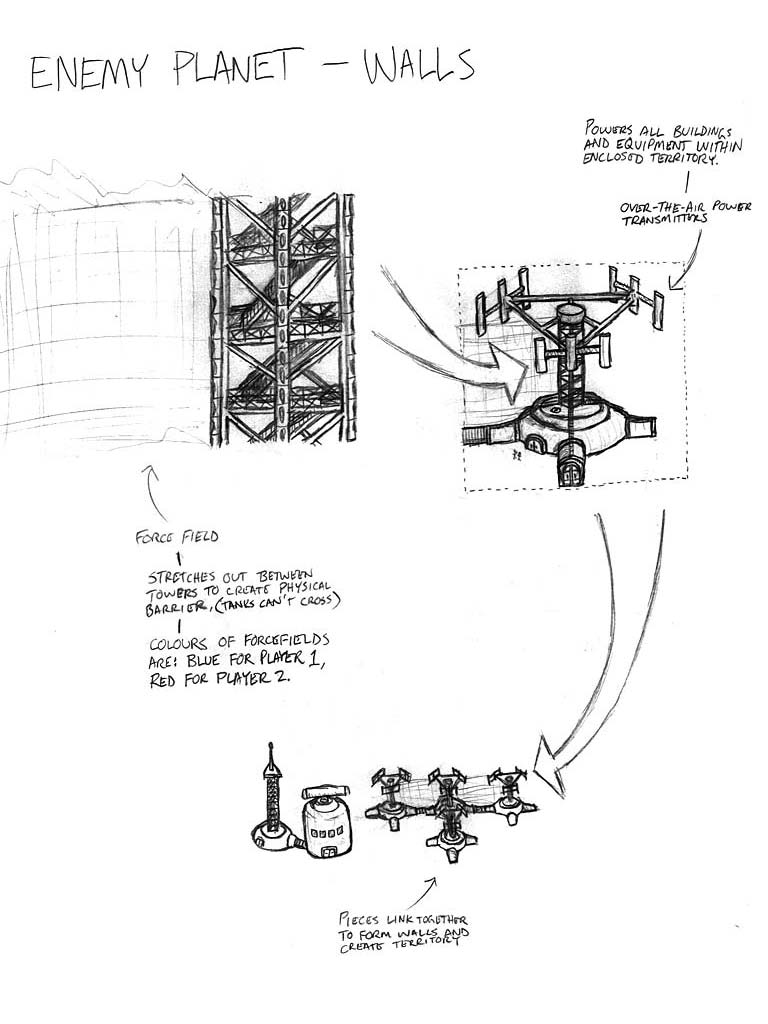 ENEMY PLANET – WALLS
POWERS ALL BUILDINGS
AND EQUIPMENT WITHIN
ENCLOSED TERRITORY.
OVER-THE-AIR POWER
TRANSMITTERS
FORCE FIELD
STRETCHES OUT BETWEEN
TOWERS TO CREATE PHYSICAL
BARRIER. (TANKS CAN'T CROSS)
COLOURS OF FORCEFIELDS
ARE: BLUE FOR PLAYER 1,
RED FOR PLAYER 2.
PIECES LINK TOGETHER
TO FORM WALLS AND
CREATE TERRITORY